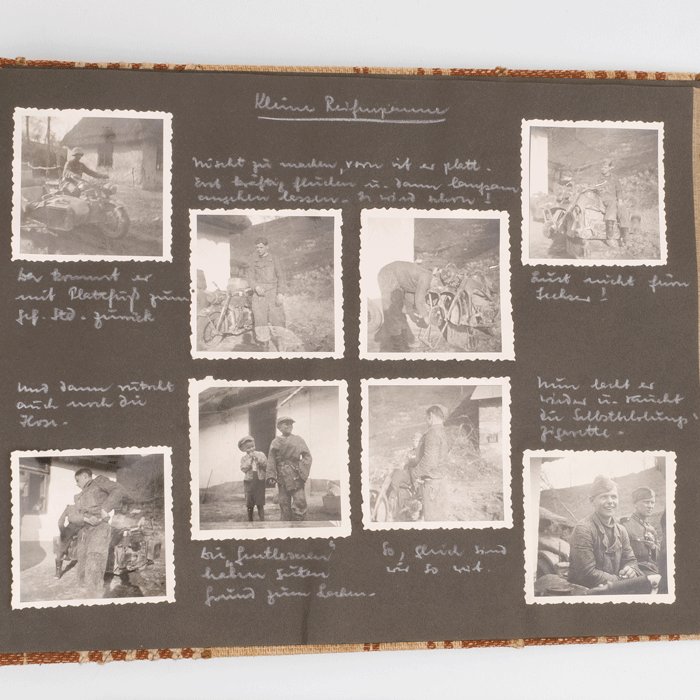 Kleine Reifenpanne
Nischt zu machen, vorn ist er platt.
Erst kräftig fluchen u. dann langsam
angehen lassen. Es wird schon!
Da kommt er
mit Plattfuß zum
Gef. Std. zurück
Lust nicht fürn
Sechser!
Und dann rutscht
auch noch die
Hose.
Nun lacht er
wieder u. raucht
die Selbstbelohnungs-
zigarette.
Die „Gentlemen"
haben guten
Grund zum Lachen.
So, gleich sind
wir so weit.